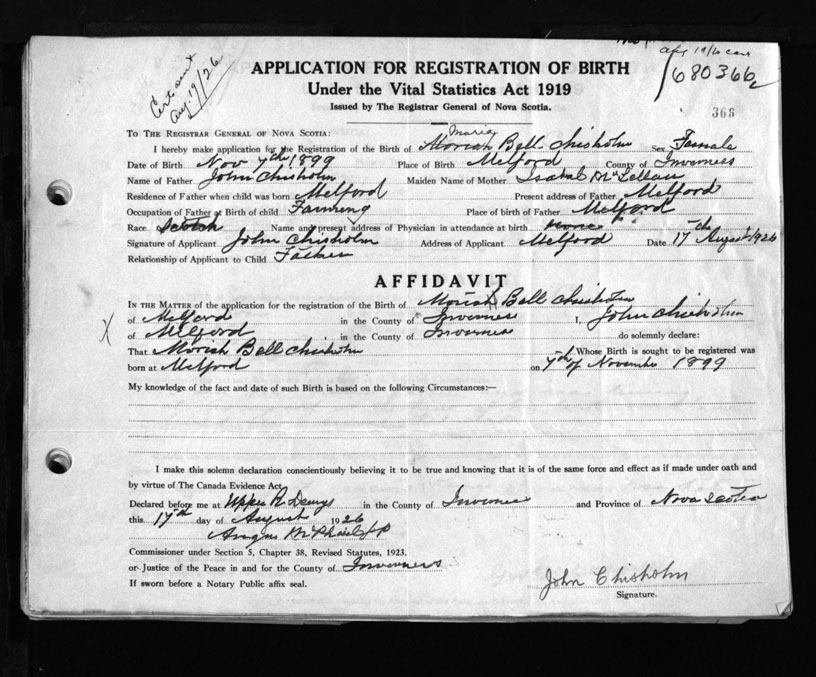 Cert sent
Aug. 19/26
Aug 19/6
680366
368
APPLICATION FOR REGISTRATION OF BIRTH
Under the Vital Statistics Act 1919
Issued by The Registrar General of Nova Scotia.
TO THE REGISTRAR GENERAL OF NOVA SCOTIA:
Maria
I hereby make application for the Registration of the Birth of Moriah Bell Chisholm Sex Female
Date of Birth Nov 7th 1899 Place of Birth Melford County of Inverness
Name of Father John Chisholm Maiden Name of Mother Isabel McLellan
Residence of Father when child was born Melford Present address of Father Melford
Occupation of Father at Birth of child Farming Place of birth of Father Melford
Race Scotch Name and present address of Physician in attendance at birth none
Signature of Applicant John Chisholm Address of Applicant Melford Date 17th August 1926
Relationship of Applicant to Child Father
AFFIDAVIT
IN THE MATTER of the application for the registration of the Birth of Moriah Bell Chisholm
of Melford in the County of Inverness I, John Chisholm
X of Melford, in the County of Inverness do solemnly declare:
That Moriah Bell Chisholm Whose Birth is sought to be registered was
born at Melford on 7th of November 1899
My knowledge of the fact and date of such Birth is based on the following Circumstances:—
I make this solemn declaration conscientiously believing it to be true and knowing that it is of the same force and effect as if made under oath and
by virtue of The Canada Evidence Act,
Declared before me at Upper R Denys in the County of Inverness and Province of Nova Scotia
this 17th day of August 1926
Angus McPhail J P
Commissioner under Section 5, Chapter 38, Revised Statutes, 1923.
or Justice of the Peace in and for the County of Inverness
If sworn before a Notary Public affix seal.
John Chisholm
Signature.